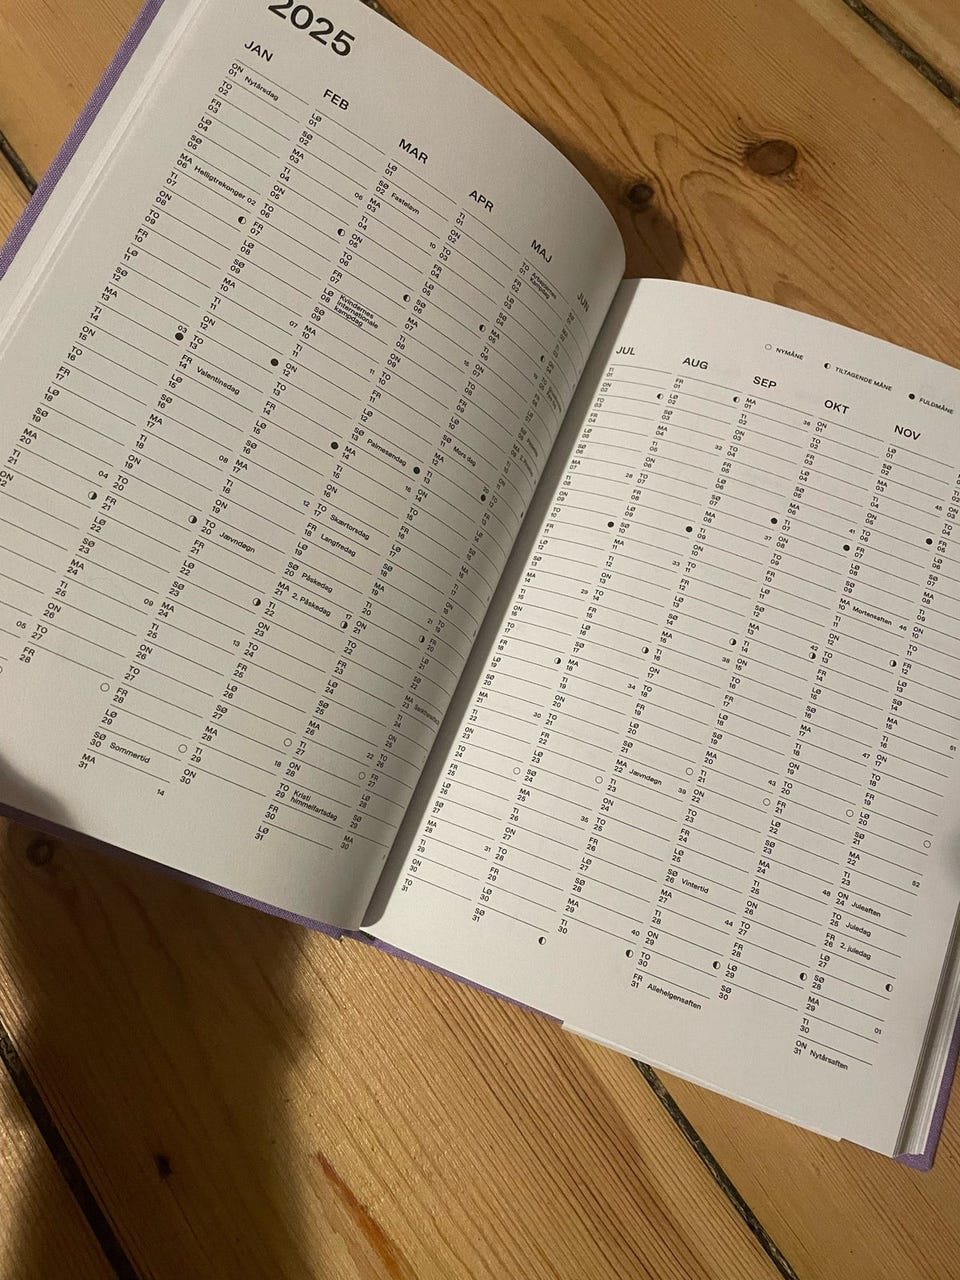 2025
JAN
ON 01 Nytårsdag
TO 02
FR 03
LØ 04
SØ 05
MA 06 Helligtrekonger 02
TI 07
ON 08
TO 09
FR 10
LØ 11
SØ 12
MA 13 03
TI 14
ON 15
TO 16
FR 17
LØ 18
SØ 19
MA 20 04
TI 21
FEB
LØ 01
SØ 02
MA 03 06
TI 04
ON 05
TO 06
FR 07
LØ 08
SØ 09
MA 10 07
TI 11
ON 12
TO 13
FR 14 Valentinsdag
LØ 15
SØ 16
MA 17 08
TI 18
ON 19
TO 20
FR 21
LØ 22
SØ 23
MA 24 09
TI 25
ON 26
TO 27
FR 28
05
MAR
LØ 01
SØ 02 Fastelavn
MA 03 10
TI 04
ON 05
TO 06
FR 07
LØ 08 Kvindernes
internationale
kampdag
SØ 09
MA 10 11
TI 11
ON 12
TO 13
FR 14
LØ 15
SØ 16
MA 17 12
TI 18
ON 19
TO 20 Jævndøgn
FR 21
LØ 22
SØ 23
MA 24 13
TI 25
ON 26
TO 27
FR 28
LØ 29
SØ 30 Sommertid
MA 31
14
APR
TI 01
ON 02
TO 03
FR 04
LØ 05
SØ 06
MA 07 15
TI 08
ON 09
TO 10
FR 11
LØ 12
SØ 13 Palmesøndag
MA 14 16
TI 15
ON 16
TO 17 Skærtorsdag
FR 18 Langfredag
LØ 19
SØ 20 Påskedag
MA 21 2. Påskedag 17
TI 22
ON 23
TO 24
FR 25
LØ 26
SØ 27
MA 28 18
TI 29
ON 30
MAJ
TO 01 Arbejdernes
kampdag
FR 02
LØ 03
SØ 04
MA 05 19
TI 06
ON 07
TO 08
FR 09
LØ 10
SØ 11 Mors dag
MA 12 20
TI 13
ON 14
TO 15
FR 16
LØ 17
SØ 18
MA 19 21
TI 20
ON 21
TO 22
FR 23
LØ 24
SØ 25
MA 26 22
TI 27
ON 28
TO 29 Kristi
himmelfartsdag
FR 30
LØ 31
JUN
TO 19
FR 20
LØ 21
SØ 22
MA 23 Sankthansaften
TI 24
ON 25
TO 26
FR 27
LØ 28
SØ 29
MA 30
NYMÅNE
TILTAGENDE MÅNE
FULDMÅNE
JUL
TI 01
ON 02
TO 03
FR 04
LØ 05
SØ 06
MA 07 28
TI 08
ON 09
TO 10
FR 11
LØ 12
SØ 13
MA 14 29
TI 15
ON 16
TO 17
FR 18
LØ 19
SØ 20
MA 21 30
TI 22
ON 23
TO 24
FR 25
LØ 26
SØ 27
MA 28 31
TI 29
ON 30
TO 31
AUG
FR 01
LØ 02
SØ 03
MA 04 32
TI 05
ON 06
TO 07
FR 08
LØ 09
SØ 10
MA 11 33
TI 12
ON 13
TO 14
FR 15
LØ 16
SØ 17
MA 18 34
TI 19
ON 20
TO 21
FR 22
LØ 23
SØ 24
MA 25 35
TI 26
ON 27
TO 28
FR 29
LØ 30
SØ 31
SEP
MA 01 36
TI 02
ON 03
TO 04
FR 05
LØ 06
SØ 07
MA 08 37
TI 09
ON 10
TO 11
FR 12
LØ 13
SØ 14
MA 15 38
TI 16
ON 17
TO 18
FR 19
LØ 20
SØ 21
MA 22 Jævndøgn 39
TI 23
ON 24
TO 25
FR 26
LØ 27
SØ 28
MA 29 40
TI 30
OKT
ON 01
TO 02
FR 03
LØ 04
SØ 05
MA 06 41
TI 07
ON 08
TO 09
FR 10
LØ 11
SØ 12
MA 13 42
TI 14
ON 15
TO 16
FR 17
LØ 18
SØ 19
MA 20 43
TI 21
ON 22
TO 23
FR 24
LØ 25
SØ 26 Vintertid
MA 27 44
TI 28
ON 29
TO 30
FR 31 Allehelgensaften
NOV
LØ 01
SØ 02
MA 03 45
TI 04
ON 05
TO 06
FR 07
LØ 08
SØ 09
MA 10 Mortensaften 46
TI 11
ON 12
TO 13
FR 14
LØ 15
SØ 16
MA 17 47
TI 18
ON 19
TO 20
FR 21
LØ 22
SØ 23
MA 24 48
TI 25
ON 26
TO 27
FR 28
LØ 29
SØ 30
03
04
FR 05
LØ 06
SØ 07
MA 08
TI 09
ON 10
TO 11
FR 12
LØ 13
SØ 14
MA 15 51
TI 16
ON 17
TO 18
FR 19
LØ 20
SØ 21
MA 22 52
TI 23
ON 24 Juleaften
TO 25 Juledag
FR 26 2. juledag
LØ 27
SØ 28
MA 29 01
TI 30
ON 31 Nytårsaften